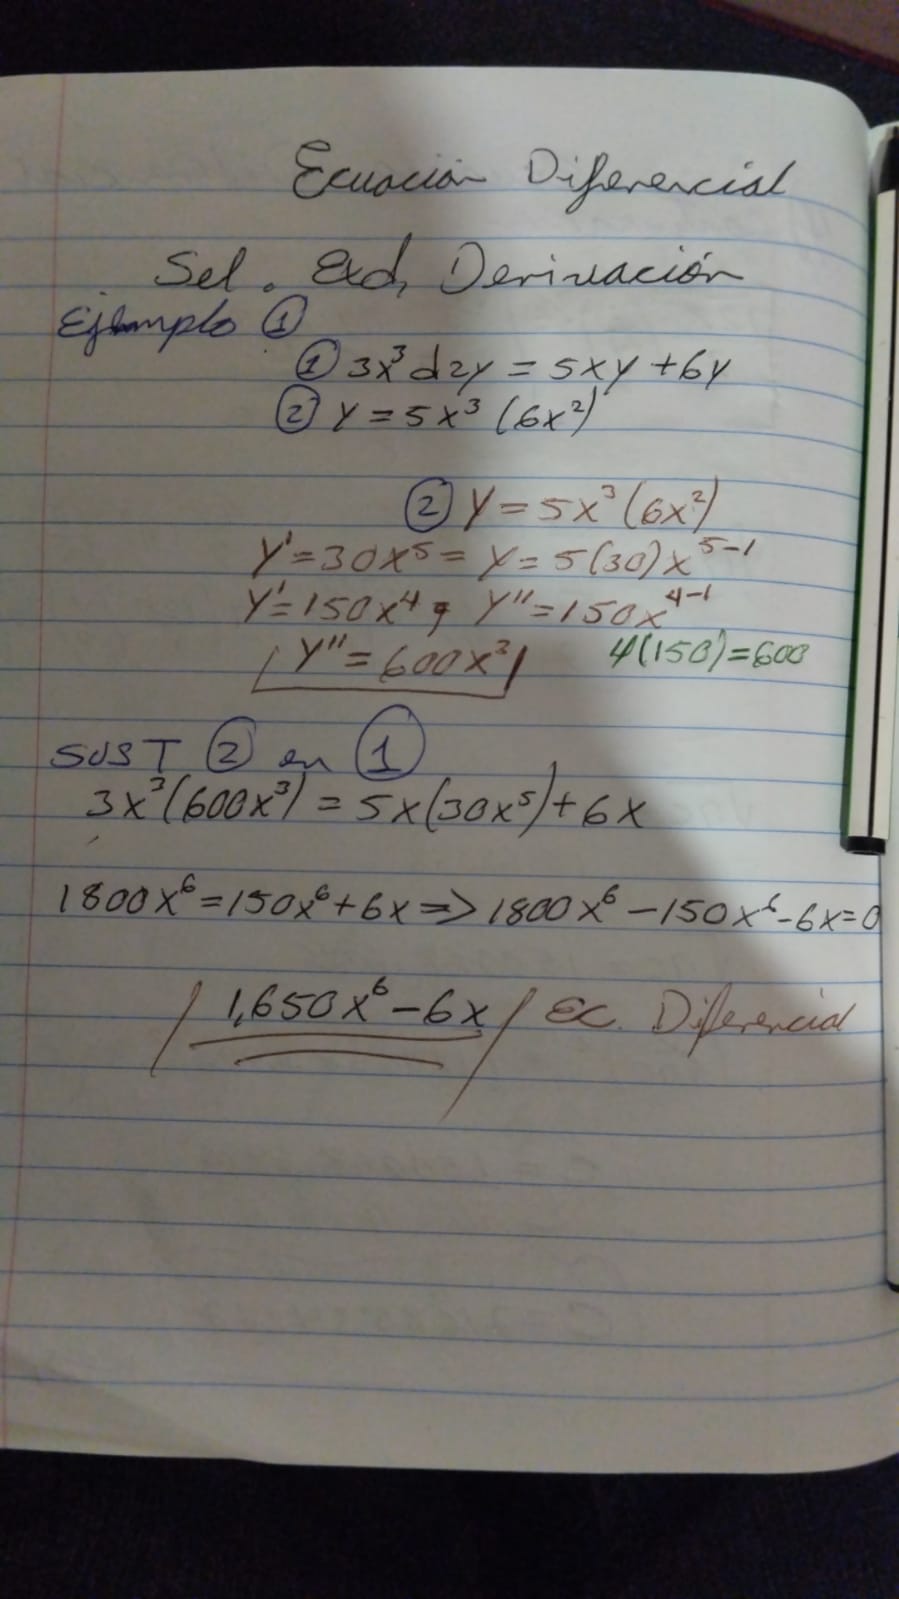 Ecuación Diferencial
Sel. Exd, Derivación
Ejemplo ①
① 3x³ d2y = 5xy + 6y
② Y = 5x³ (6x²)
② Y = 5x³ (6x²)
Y' = 30x⁵ = Y = 5(30)x⁵⁻¹
Y' = 150x⁴ y Y'' = 150x⁴⁻¹
Y'' = 600x³ 4(150)=600
SUST ② en ①
3x³(600x³) = 5x(30x⁵) + 6x
1800x⁶ = 150x⁶ + 6x => 1800x⁶ - 150x⁶ - 6x = 0
1,650x⁶ - 6x / Ec. Diferencial